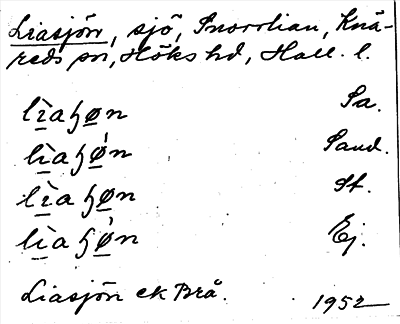 Liasjön, sjö, Snorrlian, Knä-
reds sn, Höks hd, Hall. l.
lìaɧøn Sa.
lìaɧǿn Sand.
lìaɧøn St.
lìaɧǿn Ej.
Liasjön ek Brå.
1952